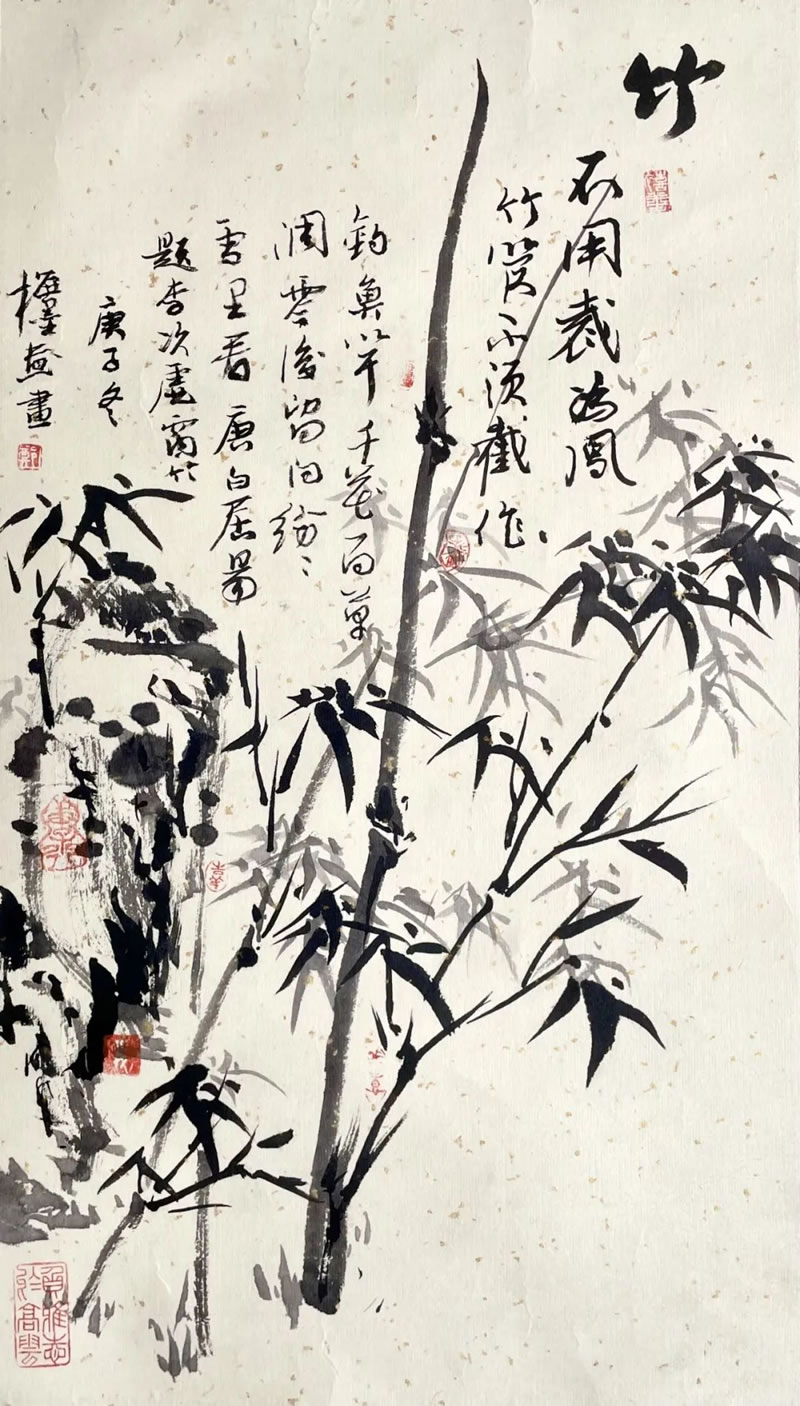 竹
不用裁为鳳
竹管不须截作
釣魚竿千花百草
凋零後留向纷〻
雪里看唐白居易
題李次雲窗竹
庚子冬
畫